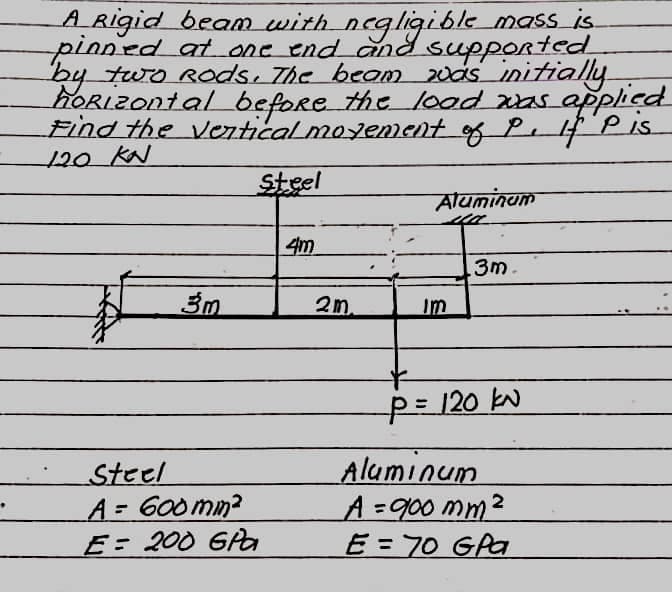 A Rigid beam with negligible mass is
pinned at one end and supported
by two Rods. The beam was initially
hoRizontal before the load was applied
Find the vertical movement of P. If P is
120 KN
Steel
Aluminum
4m
3m.
3m
2m.
1m
P = 120 kN
Steel
Aluminum
A = 600 mm²
A = 900 mm²
E = 200 GPa
E = 70 GPa